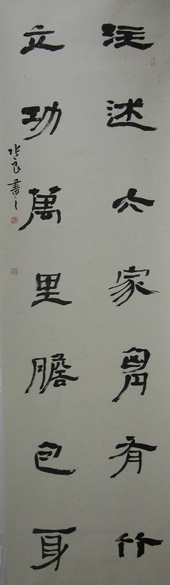 注述六家胷有竹
立功萬里膽包身
書